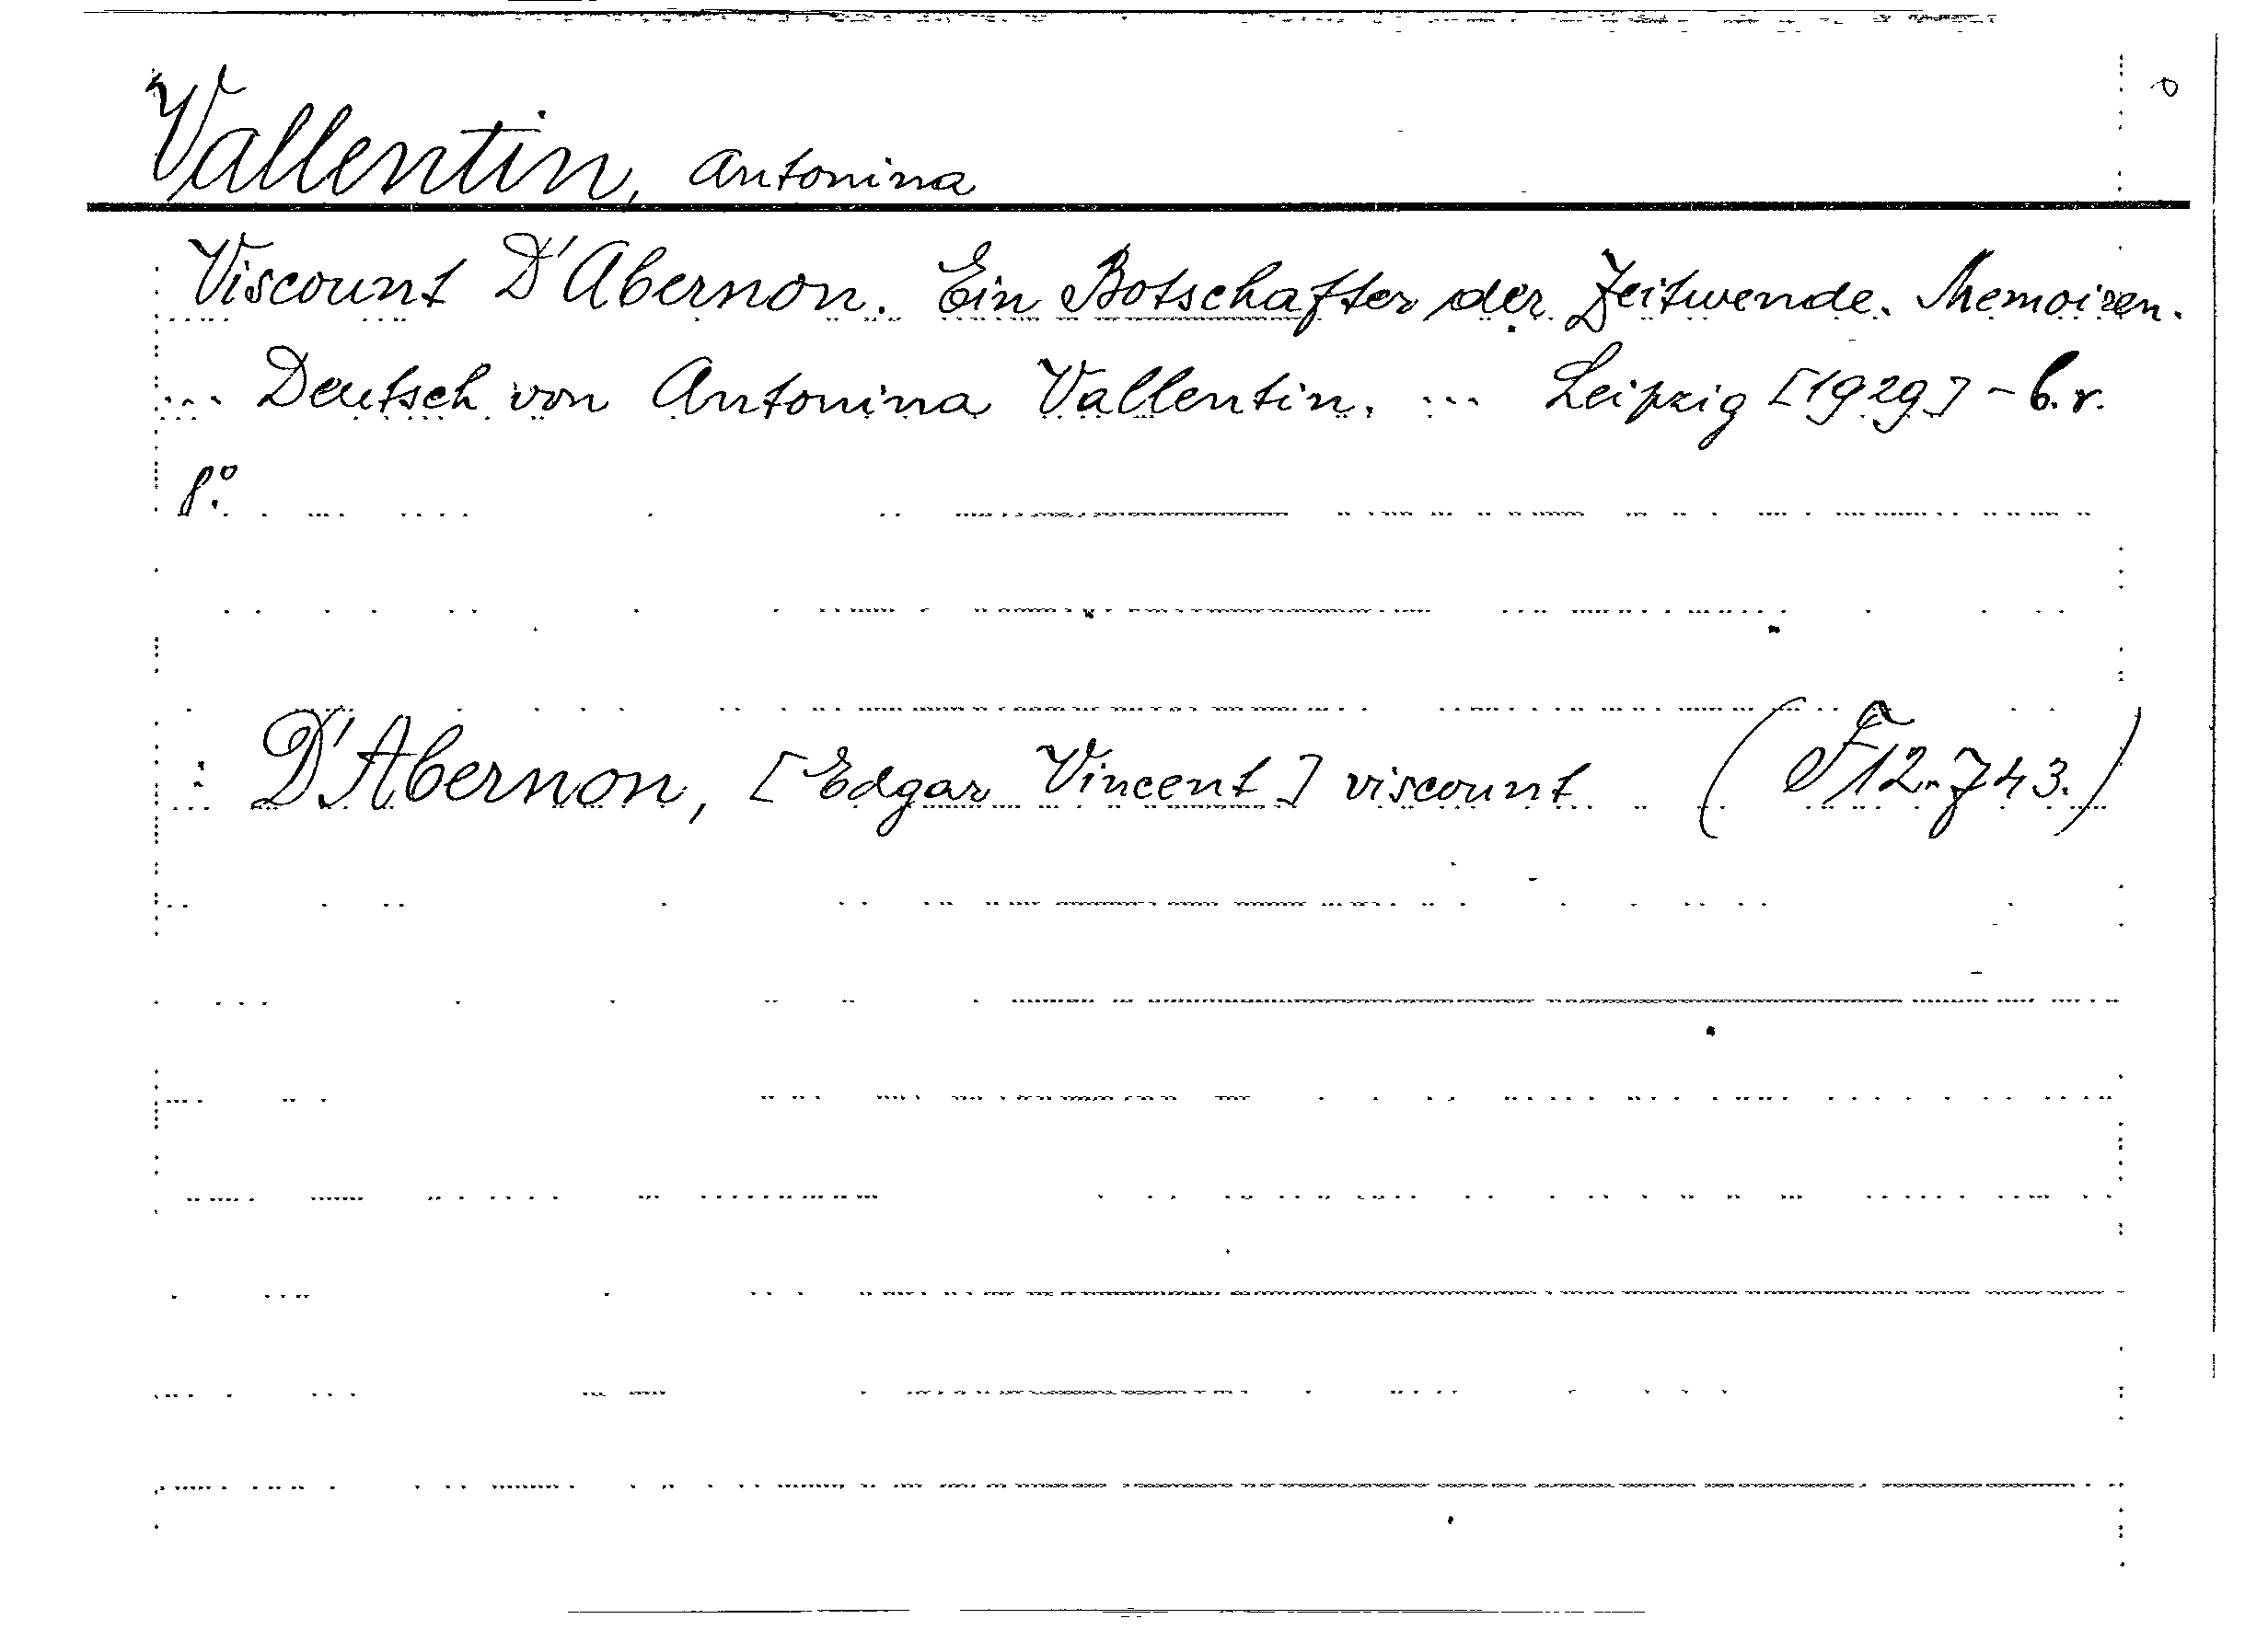 Vallentin, Antonina
Viscount D'Abernon. Ein Botschafter der Zeitwende. Memoiren.
... Deutsch von Antonina Vallentin. ... Leipzig [1929] - b.r.
8°.
: D'Abernon, [Edgar Vincent] viscount (F12.743.)